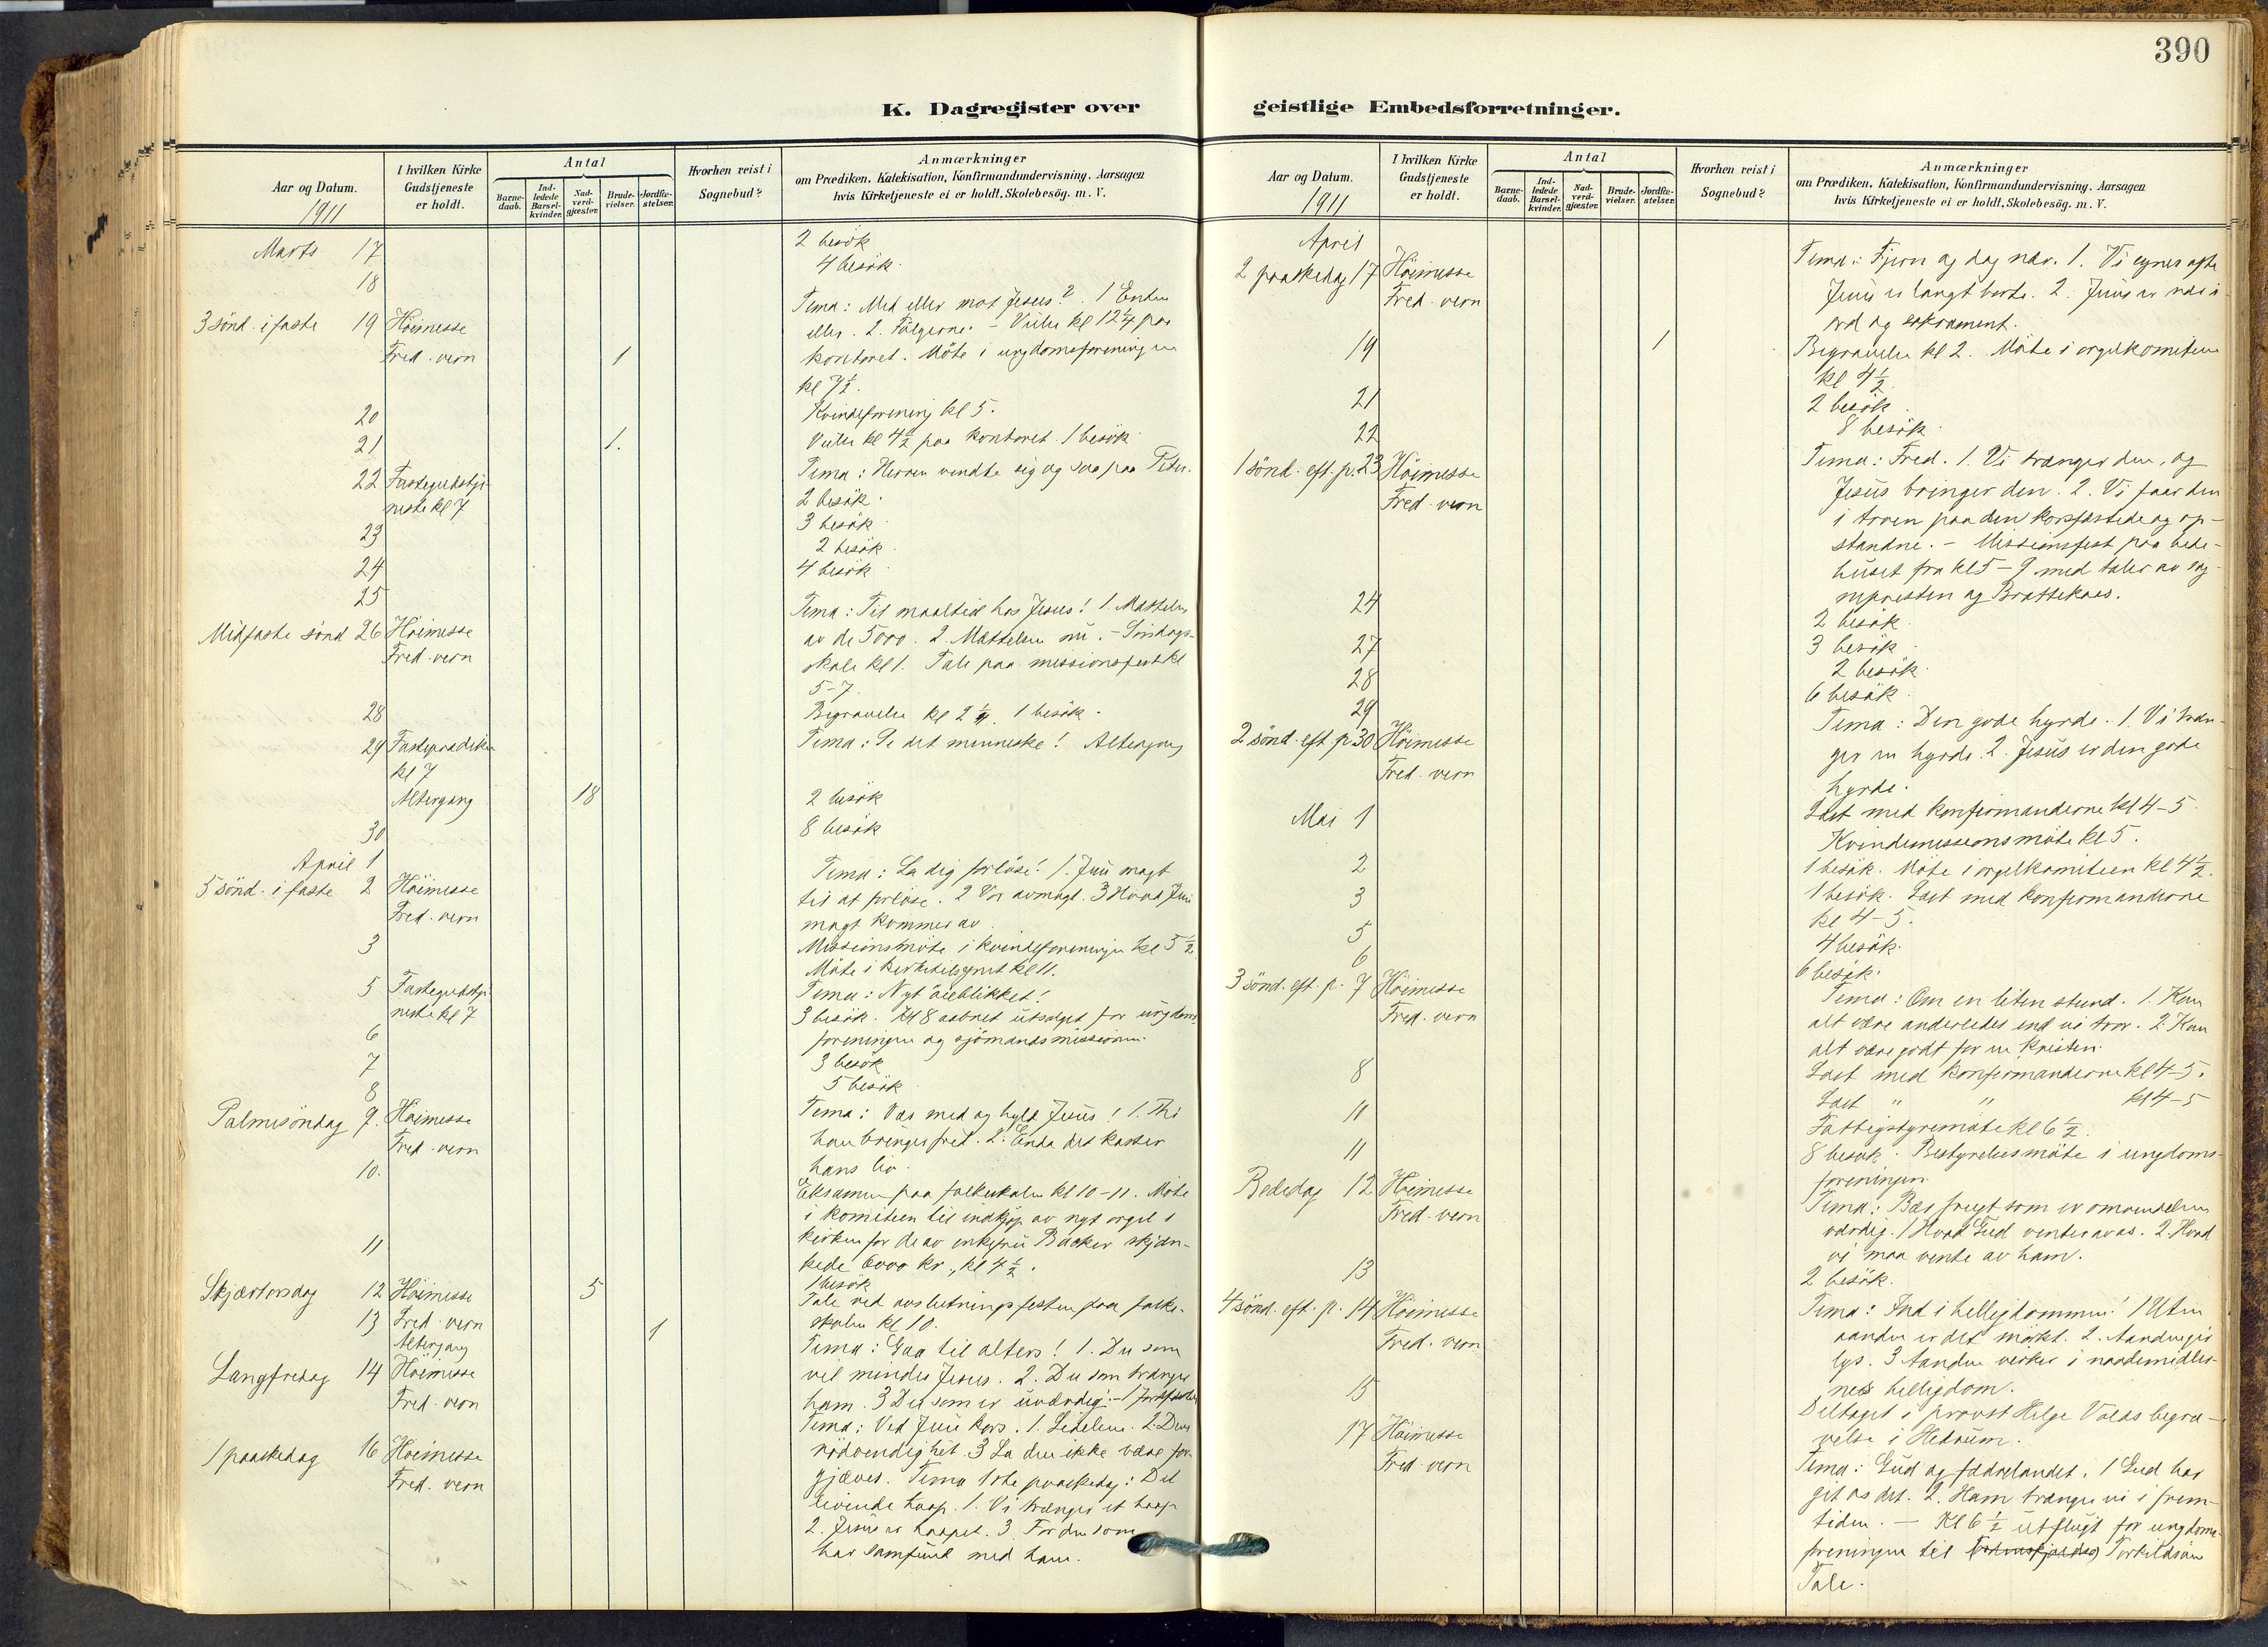 390
K. Dagregister over
geistlige Embedsforretninger.
Aar og Datum.
1911
I hvilken Kirke
Gudstjeneste
er holdt.
Antal
Barne-
daab.
Ind-
ledede
Barsel-
kvinder.
Nad-
verd-
gjæster.
Brude-
vielser.
Jordfæ-
stelser.
Hvorhen reist i
Sognebud?
Anmærkninger
om Prædiken, Katekisation, Konfirmandundervisning, Aarsagen
hvis Kirketjeneste ei er holdt, Skolebesøg. m. V.
Marts 17 2 besök
18 4 besök.
3 sönd. i faste 19 Höimesse Tema: Med eller mot Jesus? 1 Enten
eller. 2. Fölgerne. – Vielse kl 12 1/4 paa
Fred. vern 1 kontoret. Möte i ungdomsforeningen
kl 7 1/2.
20 Kvindeforening kl 5.
21 1. Vielse kl 4 1/2 paa kontoret. 1 besök
22 Fastegudstje- Tema: Herren vendte sig og saa paa Peter.
neste kl 7 2 besök.
23 3 besök
24 2 besök.
25 4 besök
Midfaste sönd 26 Höimesse Tema: Til maaltid hos Jesus! 1. Mættelsen
Fred. vern av de 5000. 2 Mættelsen nu. – Söndags-
skole kl 1. Tale paa missionsfest kl
5-7.
28 Begravelse kl 2 1/4. 1 besök.
29 Fasteprædiken Tema: Se det menneske! Altergang
kl 7
Altergang 18 2 besök
30 8 besök
April 1
5 sönd. i faste 2 Höimesse Tema: La dig forlöse! 1. Jesu magt
Fred. vern til at forlöse. 2 Vor avmagt. 3 Hvad Jesu
magt kommer av.
3 Missionsmöte i kvindeforeningen kl 5 1/2
Möte i kirketilsynet kl 11.
5 Fastegudstje- Tema: Nyt öieblikket!
neste kl 7 3 besök. Kl 8 aabnet utsalget for ungdoms-
6 foreningen og sjömandsmissionen.
7 3 besök
8 5 besök
Palmesöndag 9. Höimesse Tema: Vær med og hyld Jesus! 1. Thi
Fred. vern han bringer fred. 2. Enda det koster
hans liv.
10. Eksamen paa folkeskolen kl 10-11. Möte
i komiteen til indkjöp av nyt orgel i
11 kirken for de av enkefru Backer skjæn-
kede 6000 kr., kl 4 1/2.
1 besök
Skjærtorsdag 12 Höimesse 5 Tale ved avslutningsfesten paa folke-
13 Fred. vern 1 skolen kl 10.
Altergang Tema: Gaa til alters! 1. Du som
Langfredag 14 Höimesse vil mindes Jesus. 2. Du som trænger
Fred. vern ham. 3 Du som er uværdig. – 1 jordfæstelse
Tema: Ved Jesu kors. 1. Lidelsen. 2 Dens
1 paaskedag 16 Höimesse nödvendighet. 3 La den ikke være for-
Fred. vern gjæves. Tema 1ste paaskedag: Det
levende haap. 1. Vi trænger et haap
2. Jesus er haapet. 3. For den som
har samfund med ham.
Aar og Datum.
1911
I hvilken Kirke
Gudstjeneste
er holdt.
Antal
Barne-
daab.
Ind-
ledede
Barsel-
kvinder.
Nad-
verd-
gjæster.
Brude-
vielser.
Jordfæ-
stelser.
Hvorhen reist i
Sognebud?
Anmærkninger
om Prædiken, Katekisation, Konfirmandundervisning, Aarsagen
hvis Kirketjeneste ei er holdt, Skolebesøg. m. V.
April
2 paaskedag 17 Höimesse Tema: Fjern og dog nær. 1. Vi synes ofte
Fred. vern Jesus er langt borte. 2. Jesus er nær i
ord og sakrament.
19 1 Begravelse kl 2. Möte i orgelkomiteen
kl 4 1/2.
21 2 besök
22 8 besök.
1 sönd. eft. p. 23 Höimesse Tema: Fred. 1. Vi trænger den, og
Fred. vern Jesus bringer den. 2. Vi faar den
i troen paa den korsfæstede og op-
standne. – Missionsfest paa bede-
huset fra kl 5-9 med taler av sog-
nepresten og Brattekaas.
24 2 besök
27 3 besök
28 2 besök.
29 6 besök.
2 sönd. eft. p. 30 Höimesse Tema: Den gode hyrde. 1. Vi træn-
Fred. vern ger en hyrde. 2. Jesus er den gode
hyrde.
Mai 1 Læst med konfirmanderne kl 4-5.
Kvindemissionsmöte kl 5.
2 1 besök. Möte i orgelkomiteen kl 4 1/2.
3 1 besök. Læst med konfirmanderne
kl 4-5.
5 4 besök.
6 6 besök.
3 sönd. eft. p. 7 Höimesse Tema: Om en liten stund. 1. Kan
Fred. vern alt være anderledes end vi tror. 2. Kan
alt være godt for en kristen.
8 Læst med konfirmanderne kl 4-5.
11 Læst " " kl 4-5
Fattigstyremöte kl 6 1/2.
11 8 besök. Bestyrelsesmöte i ungdoms-
foreningen.
Bededag 12 Höimesse Tema: Bær frugt som er omvendelsen
Fred. vern værdig. 1 Hvad Gud venter av os. 2. Hvad
vi maa vente av ham.
13 2 besök.
4 sönd. eft. p. 14 Höimesse Tema: Ind i helligdommen! 1 Uten
Fred. vern aanden er det mörkt. 2. Aanden gir
lys. 3 Aanden virker i naademidler-
nes helligdom.
15 Deltaget i provst Helge Valds begra-
velse i Hedrum.
17 Höimesse Tema: Gud og fædrelandet. 1 Gud har
Fred. vern git os det. 2. Ham trænger vi i frem-
tiden. – Kl 6 1/2 utflugt for ungdoms-
foreningen til Torkildsöen
Tale.